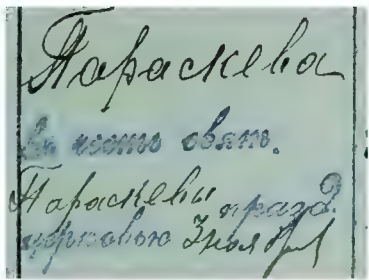 Параскева
въ честь свят.
Параскевы празд.
церковью 3 ноября